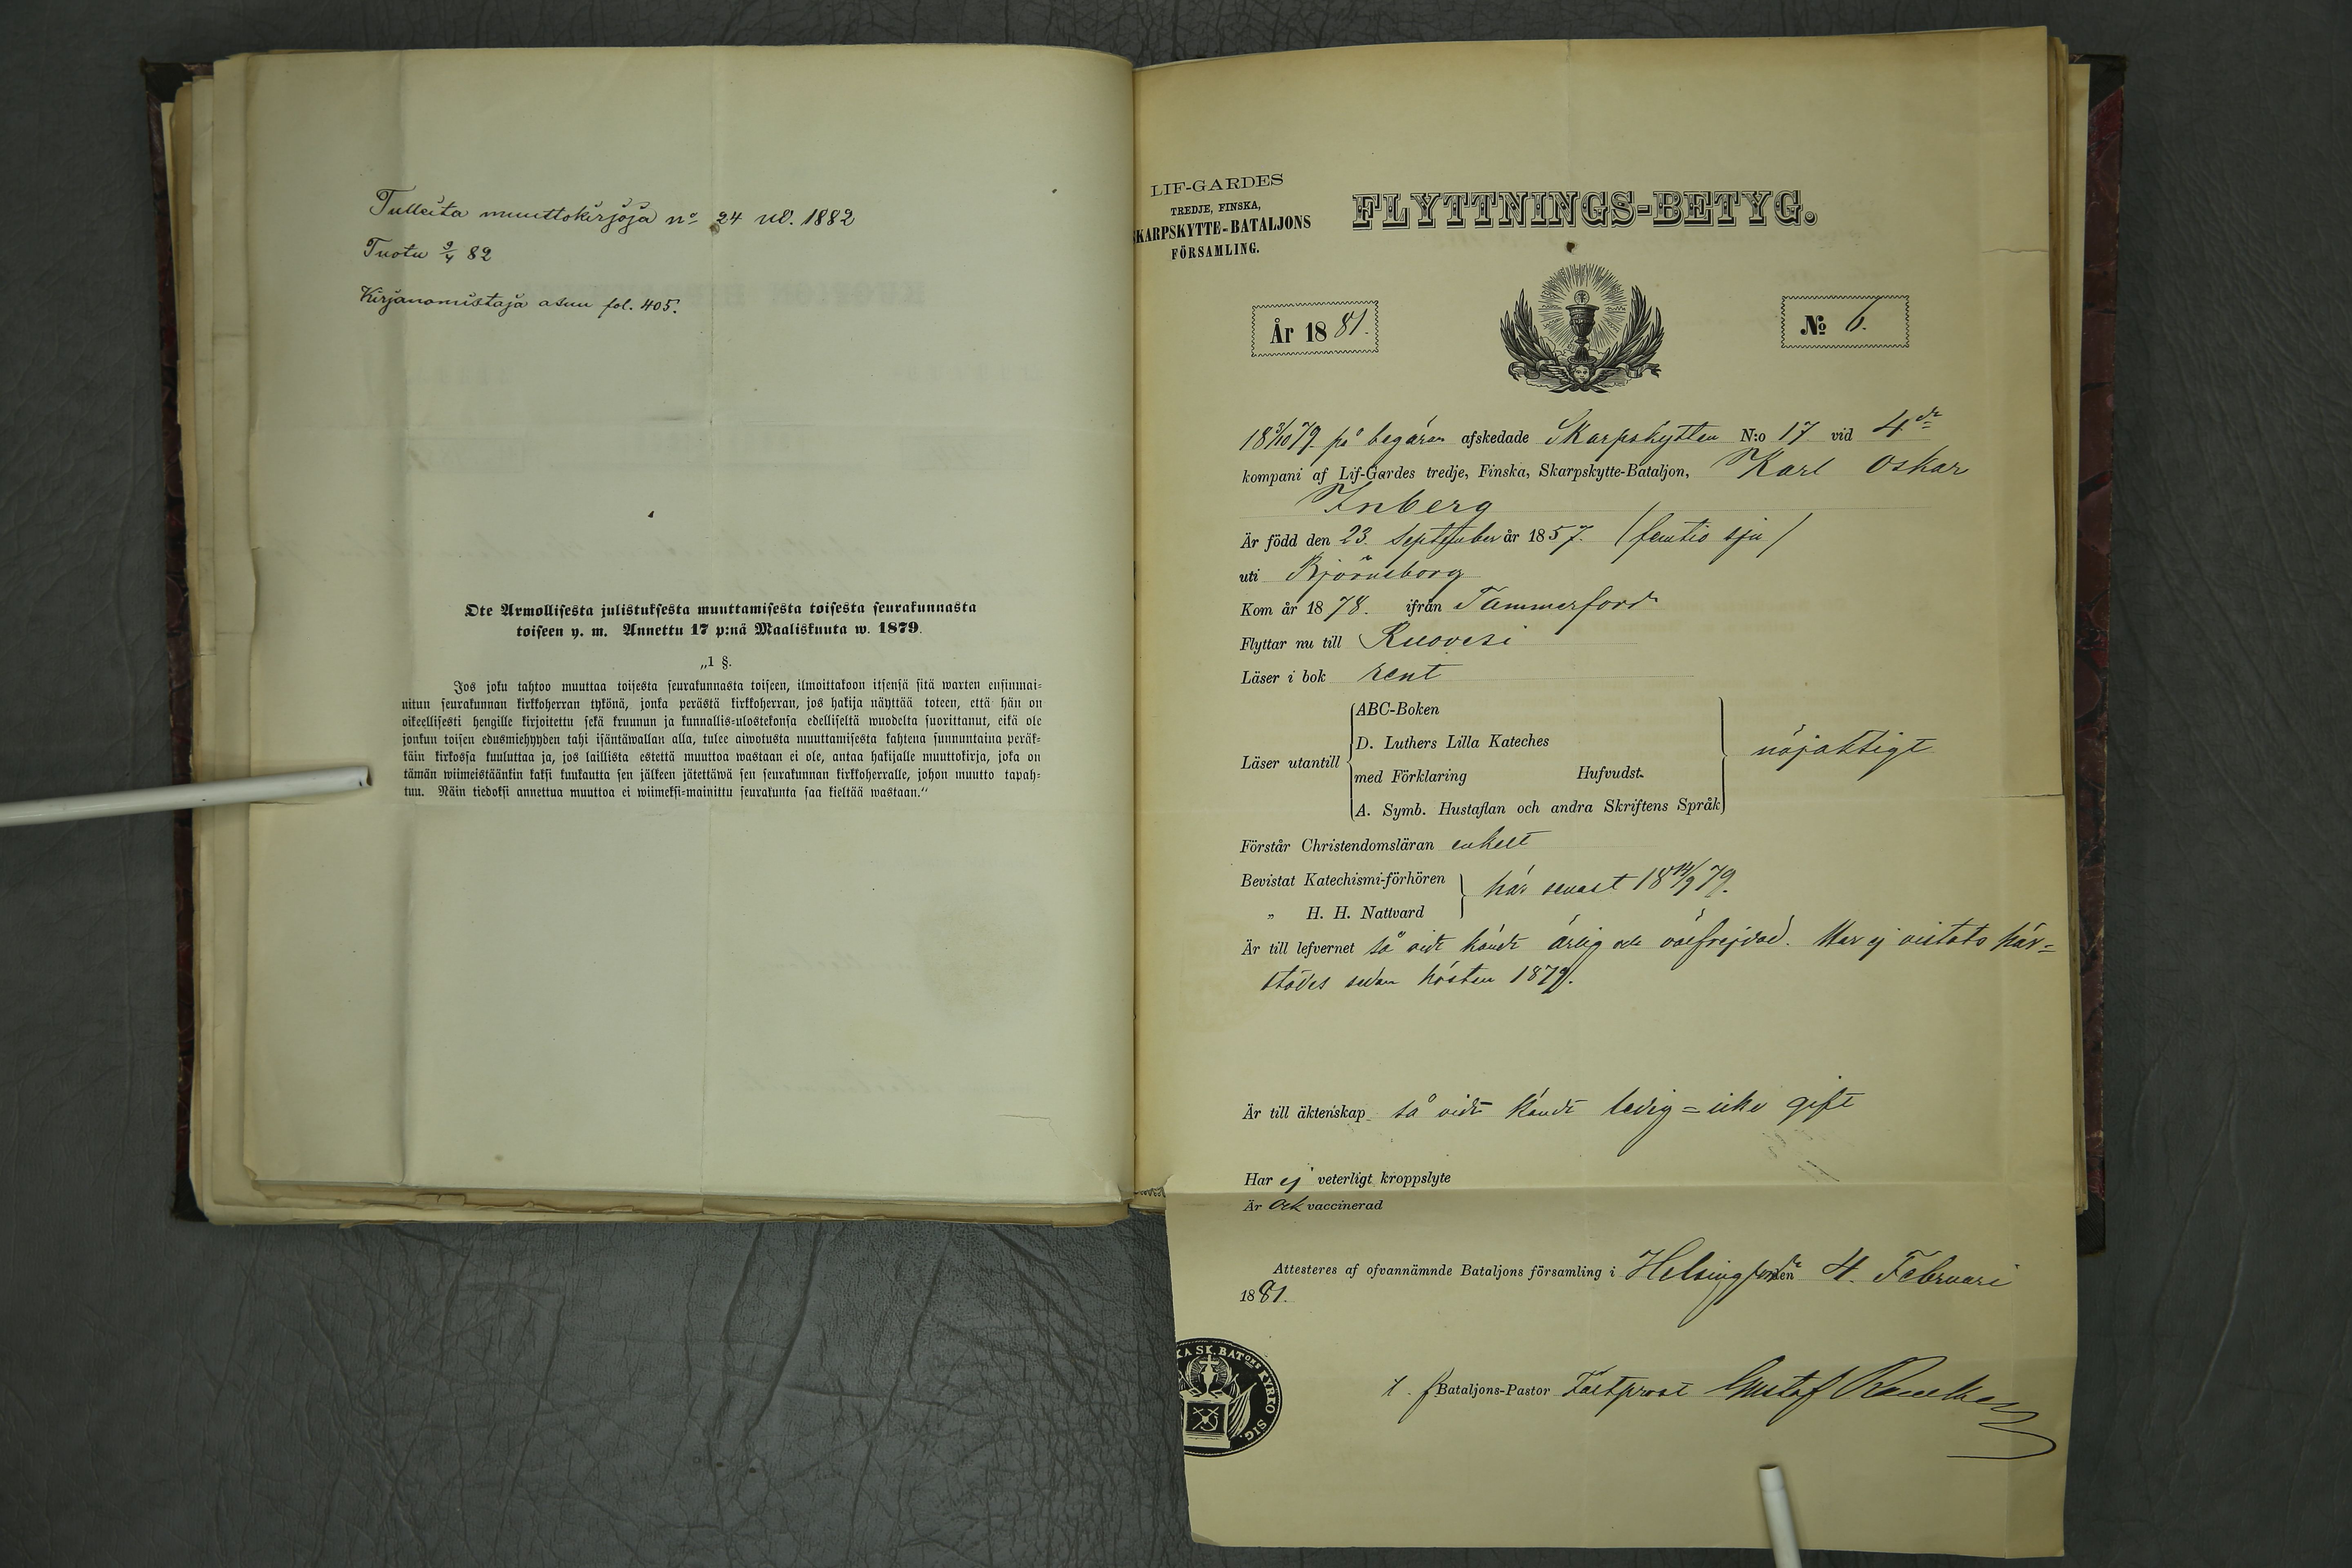 Tulleita muuttokirjoja no 24 vl. 1882
Tuotu 9/4 82
Kirjanomistaja asuu fol. 405.
Ote Armollisesta julistuksesta muuttamisesta toisesta seurakunnasta
toiseen y. m. Annettu 17 p:nä Maaliskuuta w. 1879.
„1 §.
Jos joku tahtoo muuttaa toisesta seurakunnasta toiseen, ilmoittakoon itsensä sitä warten ensinmai-
nitun seurakunnan kirkkoherran tykönä, jonka perästä kirkkoherran, jos hakija näyttää toteen, että hän on
oikeellisesti hengille kirjoitettu sekä kruunun ja kunnallis-ulostekonsa edelliseltä wuodelta suorittanut, eikä ole
jonkun toisen edusmiehyyden tahi isäntäwallan alla, tulee aiwotusta muuttamisesta kahtena sunnuntaina peräk-
käin kirkossa kuuluttaa ja, jos laillista estettä muuttoa wastaan ei ole, antaa hakijalle muuttokirja, joka on
tämän wiimeistäänkin kaksi kuukautta sen jälkeen jätettäwä sen seurakunnan kirkkoherralle, johon muutto tapah-
tuu. Näin tiedoksi annettua muuttoa ei wiimeksi-mainittu seurakunta saa kieltää wastaan."
LIF-GARDES
TREDJE, FINSKA,
SKARPSKYTTE-BATALJONS
FÖRSAMLING.
FLYTTNINGS-BETYG.
År 1881.
No 6.
18 3/10 79 på begäran afskedade Skarpskytten N:o 17 vid 4de
kompani af Lif-Gardes tredje, Finska, Skarpskytte-Bataljon, Karl Oskar
Inberg
Är född den 23. September år 1857. (femtio sju)
uti Björneborg
Kom år 1878. ifrån Tammerfors
Flyttar nu till Ruovesi
Läser i bok rent
Läser utantill
ABC-Boken
D. Luthers Lilla Kateches
med Förklaring Hufvudst.
A. Symb. Hustaflan och andra Skriftens Språk
nöjaktigt
Förstår Christendomsläran enkelt
Bevistat Katechismi-förhören
„ H. H. Nattvard
här senast 18 14/9 79.
Är till lefvernet så vidt kändt ärlig och välfrejdad. Har ej vistats här-
städes sedan hösten 1879.
Är till äktenskap så vidt kändt ledig = icke gift
Har ej veterligt kroppslyte
Är ock vaccinerad
Attesteres af ofvannämnde Bataljons församling i Helsingfors den 4. Februari
1881.
KA SK. BATons KYRKO SIG.
t. f. Bataljons-Pastor Fältprost Gustaf